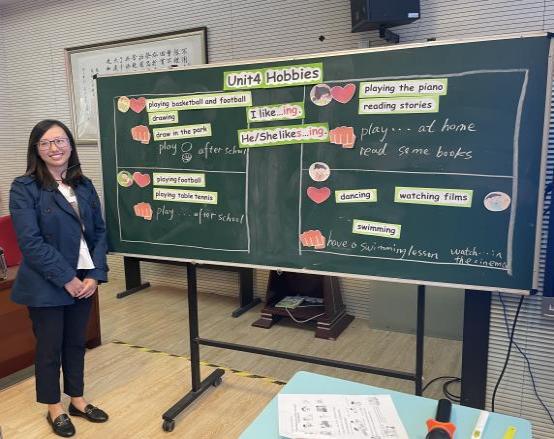 Unit4 Hobbies
I like...ing.
He/She likes...ing.
playing basketball and football
drawing
draw in the park
play after school
playing football
playing table tennis
play... after school
playing the piano
reading stories
play... at home
read some books
dancing
watching films
swimming
have a swimming lesson
watch...in
the cinema